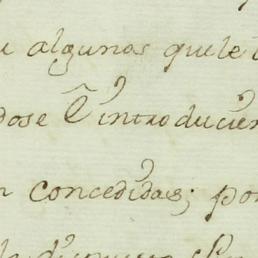 algunos que le
dose è introducien
n concedidas; por